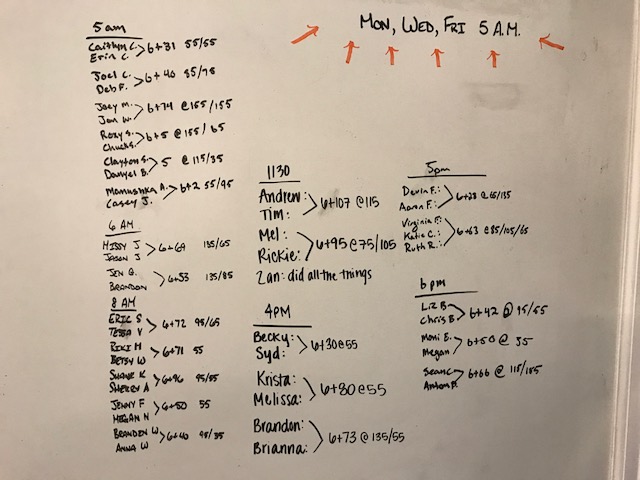 MON, WED, FRI 5 A.M.
5am
Caitlyn C.
Erin C. > 6+31 55/55
Joel C.
Deb F. > 6+40 55/75
Joey M.
Jon W. > 6+74 @155/155
Roxy S.
Chuck S. > 6+5 @155/65
Clayton S.
Danyel B. > 5 @115/35
Manushka A.
Casey J. > 6+2 55/95
6 AM
MISSY J
JASON J > 6+69 135/65
JEN G.
BRANDON > 6+53 135/85
8 AM
ERIC S
TESSA V > 6+72 95/65
RIKI H
BETSY W > 6+71 55
SHANE K
SHERRY A > 6+96 95/55
JENNY F
MEGAN N > 6+50 55
BRANDEN W
ANNA W > 6+40 95/35
1130
Andrew:
Tim: > 6+107 @115
Mel:
Rickie: > 6+95 @75/105
Zan: did all the things
4PM
Becky:
Syd: > 6+30@55
Krista:
Melissa: > 6+80@55
Brandon:
Brianna: > 6+73 @135/55
5pm
Devin F.:
Aaron F.: > 6+28 @65/135
Virginia F.:
Katie C.:
Ruth R.: > 6+63 @85/105/65
6pm
Liz B
Chris B > 6+42 @ 95/55
Moni E.
Megan > 6+50 @ 55
Sean C
Anton P. > 6+66 @ 115/155